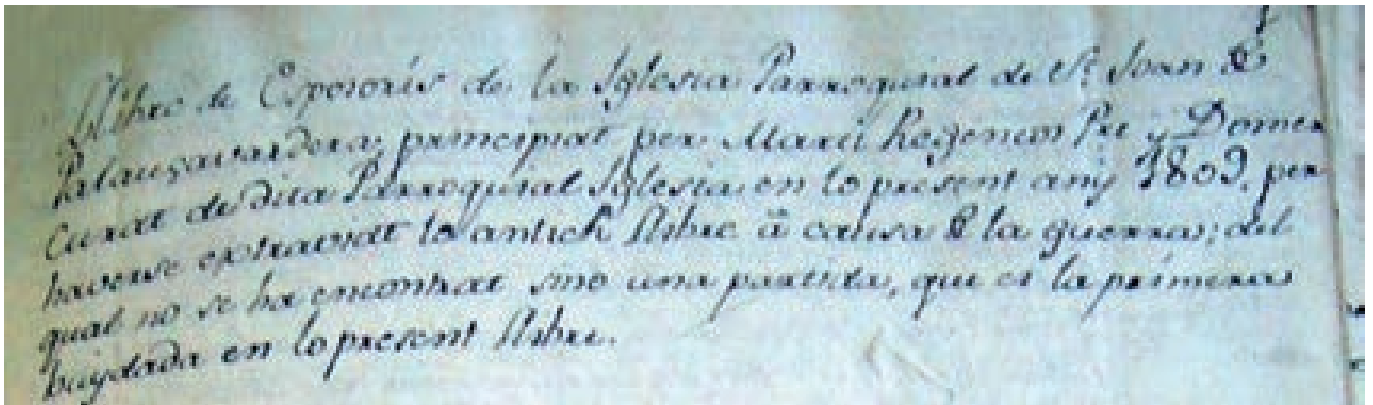 Llibre de Esposoris de la Iglesia Parroquial de St. Joan de
Palauçavardera, principiat per Martí Regencos Pre. y Domer
Curat de dita Parroquial Iglesia, en lo present any 1809, per
haverse extraviat lo antich llibre â causa de la guerra; del
qual no se ha encontrat sino una partida, que es la primera
buydada en lo present llibre.